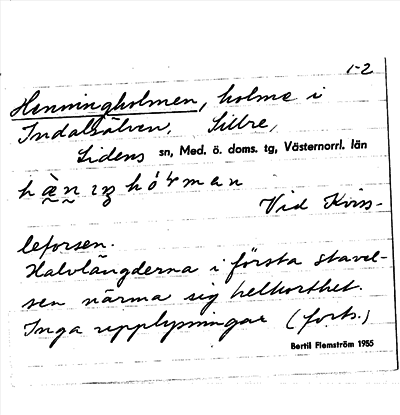 1-2
Henningholmen, holme i
Indalsälven, Sillre,
Lidens sn, Med. ö. doms. tg, Västernorrl. län
Vid Kviss-
leforsen.
Halvlängderna i första stavel-
sen närma sig helkorthet.
Inga upplysningar (forts.)
Bertil Flemström 1955